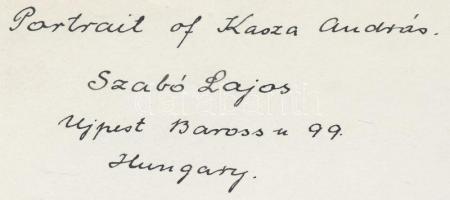 Portrait of Kasza András.
Szabó Lajos
Ujpest Baross u 99.
Hungary.